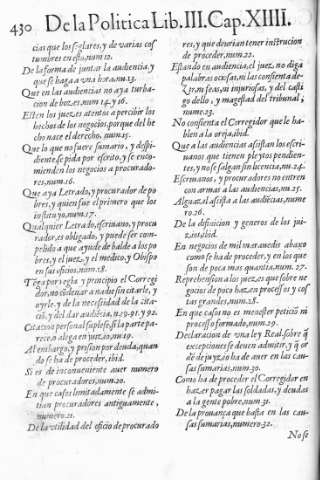 430 De la Politica Lib. III. Cap. XIIII.
cias que los seglares, y de varias cos
tumbres en esto, num. 12.
De la forma de juntar la audiencia, y
que se haga a vna hora, nu. 13.
Que en las audiencias no aya turba-
cion de bozes, num. 14. y 16.
Esten los juezes atentos a percibir los
hechos de los negocios, porque del he
cho nace el derecho, num. 15.
Que lo que no fuere sumario, y despi-
diente se pida por escrito, y se enco-
mienden los negocios a procurado-
res, num. 16.
Que aya Letrado, y procurador de po
bres, y quien fue el primero que los
instituyo, num. 17.
Qualquier Letrado, escriuano, y procu
rador, es obligado, y puede ser com-
pelido a que ayude de balde a los po
bres, y el juez, y el medico, y Obispo
en sus oficios, num. 18.
Tega por regla y principio el Corregi
dor, no condenar a nadie sin citarle, y
oyrle, y de la necessidad de la cita-
ciō, y del dar audiēcia, n. 19. 91. y 92.
Citacion personal suple se si la parte pa-
rece a alega en juyzio, nu. 19.
Al embargo, y prision por deuda, quan
do se ha de proceder, ibid.
Si es de inconueniente auer numero
de procuradores, num. 20.
En que casos limitadamente se admi-
tian procuradores antiguamente,
numero. 21.
De la vtilidad del oficio de procurado
res, y que deurian tener instrucion
de proceder, num. 22.
Estando en audiencia, el juez, no diga
palabras ociosas, ni las consienta de-
zir, ni feas, ni injuriosas, y del casti
go dello, y magestad del tribunal,
nume. 23.
No consienta el Corregidor que le ha-
blen a la oreja, ibid.
Que a las audiencias asistan los escri-
uanos que tienen pleytos pendien-
tes, y no se salgan sin licencia, nu. 24.
Escriuanos, y procuradores no entren
con armas a las audiencias, nu. 25.
Alguazil asista a las audiēcias, nume
ro. 26.
De la difinicion y generos de los jui-
zios, ibid.
En negocios de mil marauedis abaxo
como se ha de proceder, y en los que
son de poca mas quantia, num. 27.
Reprehension a los juezes que sobre ne
gocios de poco hazen processos y cos
tas grandes, num. 28.
En que casos no es menester peticiō ni
processo formado, num. 29.
Declaracion de vna ley Real sobre q̄
excepciones se deuen admitir, y q̄ or
dē de juyzio ha de auer en las cau-
sas sumarias, num. 30.
Como ha de proceder el Corregidor en
hazer pagar las soldadas, y deudas
a la gente pobre, num. 31.
De la prouança que basta en las cau-
sas sumarias, numero. 32.
No se